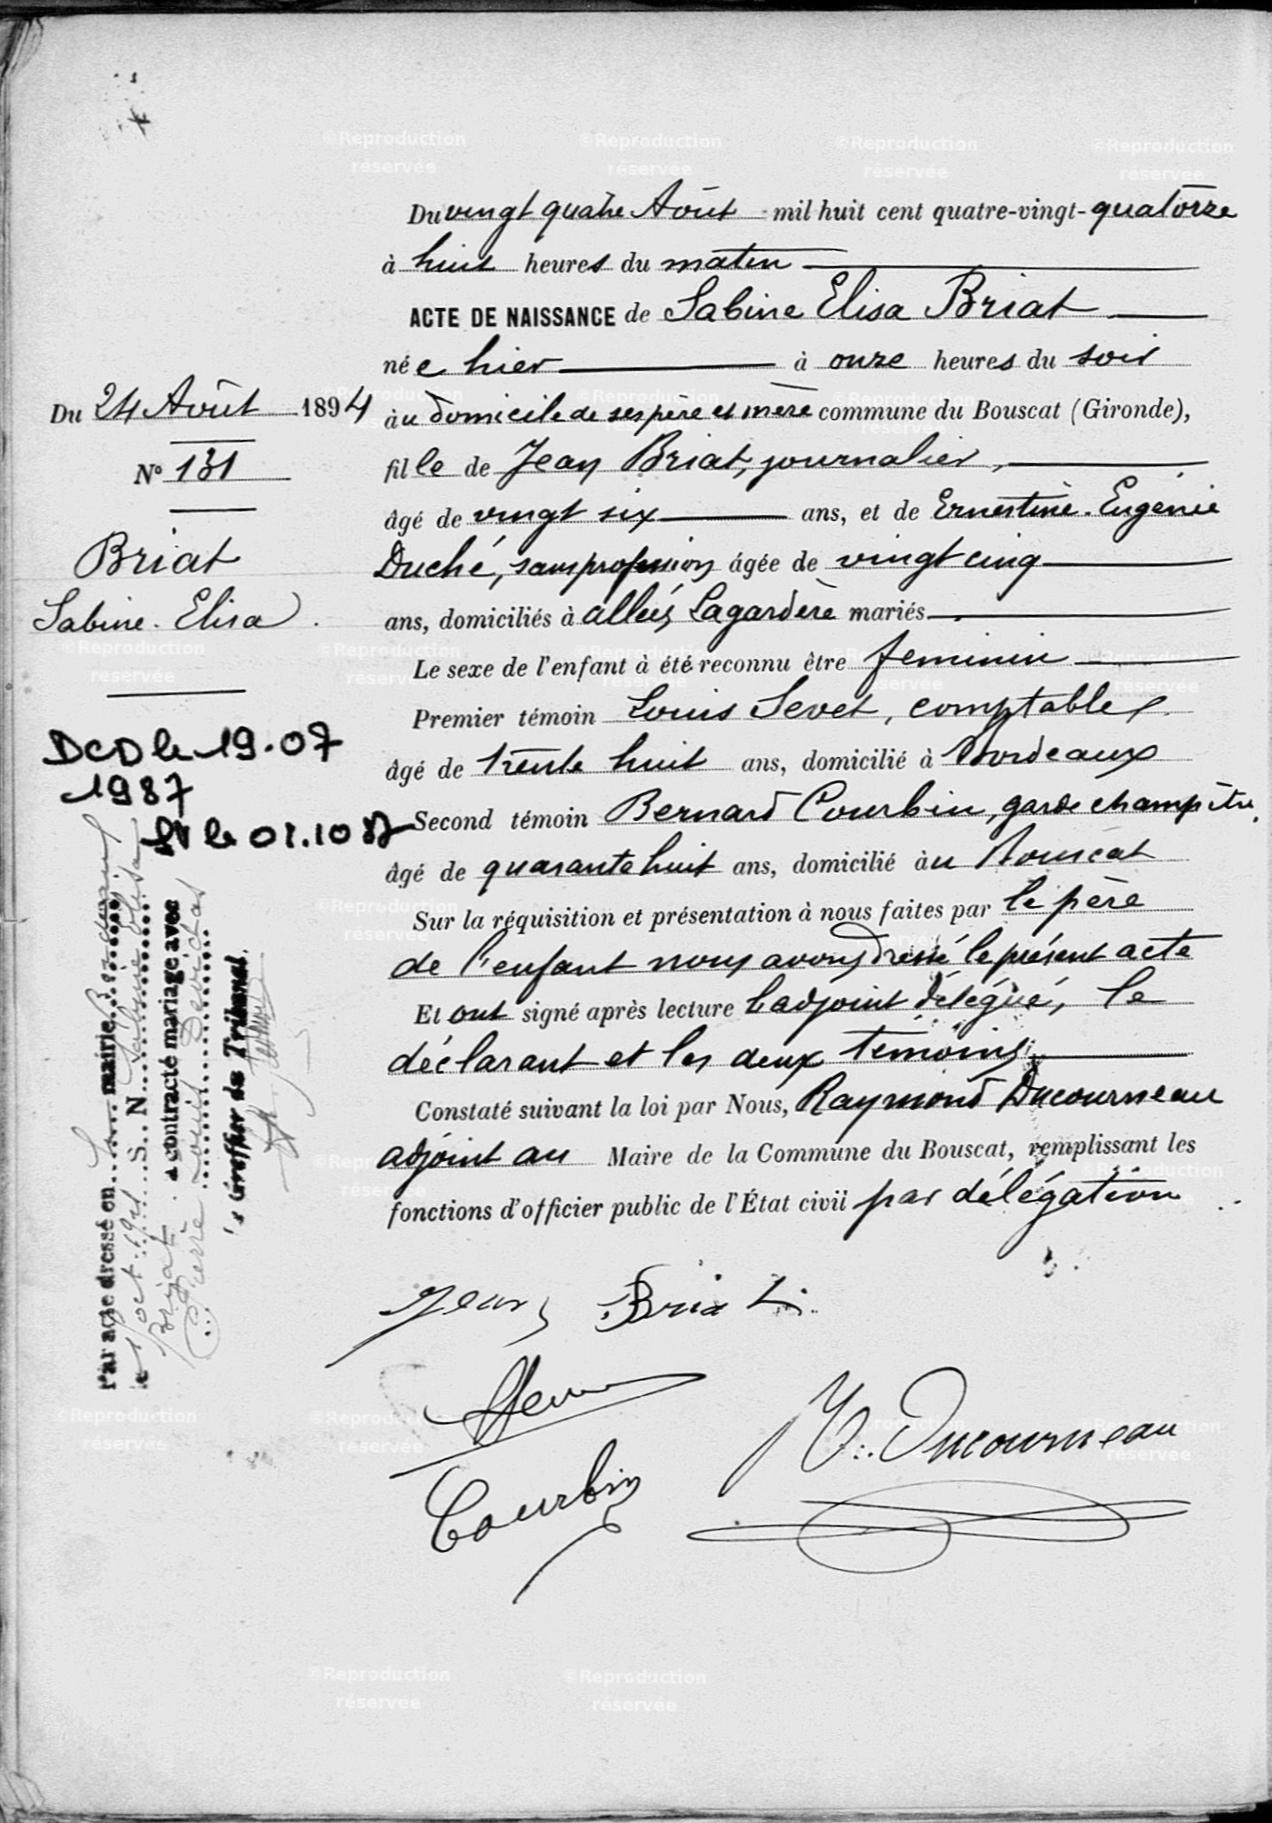 Du vingt quatre Août mil huit cent quatre-vingt-quatorze
à huit heures du matin
ACTE DE NAISSANCE de Sabine Elisa Briat
née hier à onze heures du soir
au domicile de ses père et mère commune du Bouscat (Gironde),
fille de Jean Briat, journalier,
âgé de vingt six ans, et de Ernestine-Eugénie
Duché, sans profession âgée de vingt cinq
ans, domiciliés à allées Lagardère mariés
Le sexe de l'enfant à été reconnu être féminin
Premier témoin Louis Sevet, comptable
âgé de trente huit ans, domicilié à Bordeaux
Second témoin Bernard Courbin, garde champêtre,
âgé de quarante huit ans, domicilié au Bouscat
Sur la réquisition et présentation à nous faites par le père
de l'enfant nous avons dressé le présent acte
Et ont signé après lecture l'adjoint délégué, le
déclarant et les deux témoins
Constaté suivant la loi par Nous, Raymond Ducourneau
adjoint au Maire de la Commune du Bouscat, remplissant les
fonctions d'officier public de l'État civil par délégation
Jean Briat
Courbin
Ducourneau
Du 24 Août 1894
N° 131
Briat
Sabine-Elisa
DCD le 19.07
1987
le 01.10 87
Par acte dressé en mairie
le 1 oct S. N. Sabine Elisa
Briat a contracté mariage avec
Pierre Louis
Le Greffier du Tribunal.
©Reproduction réservée